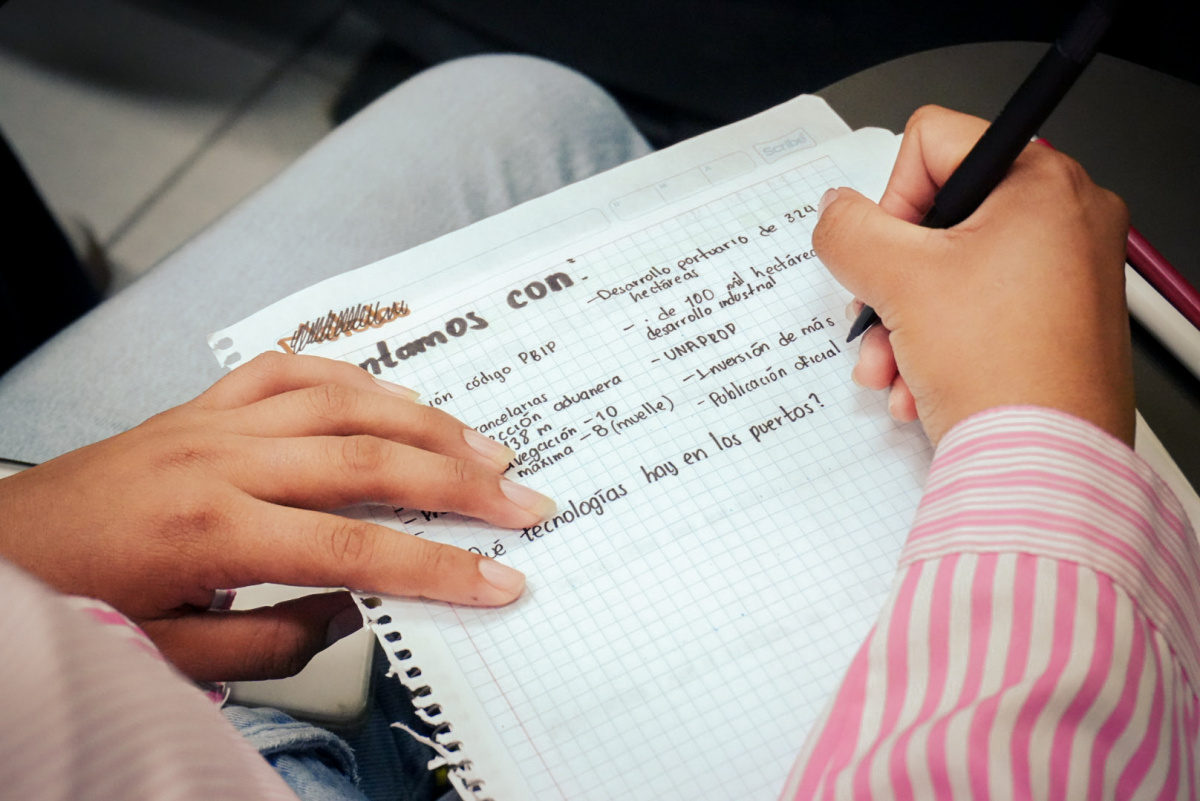 Scribe
ntamos con:
ión código PBIP
rancelarias
cción aduanera
138 m
vegación - 10
máxima - 8 (muelle)
- Desarrollo portuario de 324
hectáreas
- de 100 mil hectárea
desarrollo industrial
- UNAPROP
- Inversión de más
- Publicación oficial
Qué tecnologías hay en los puertos?